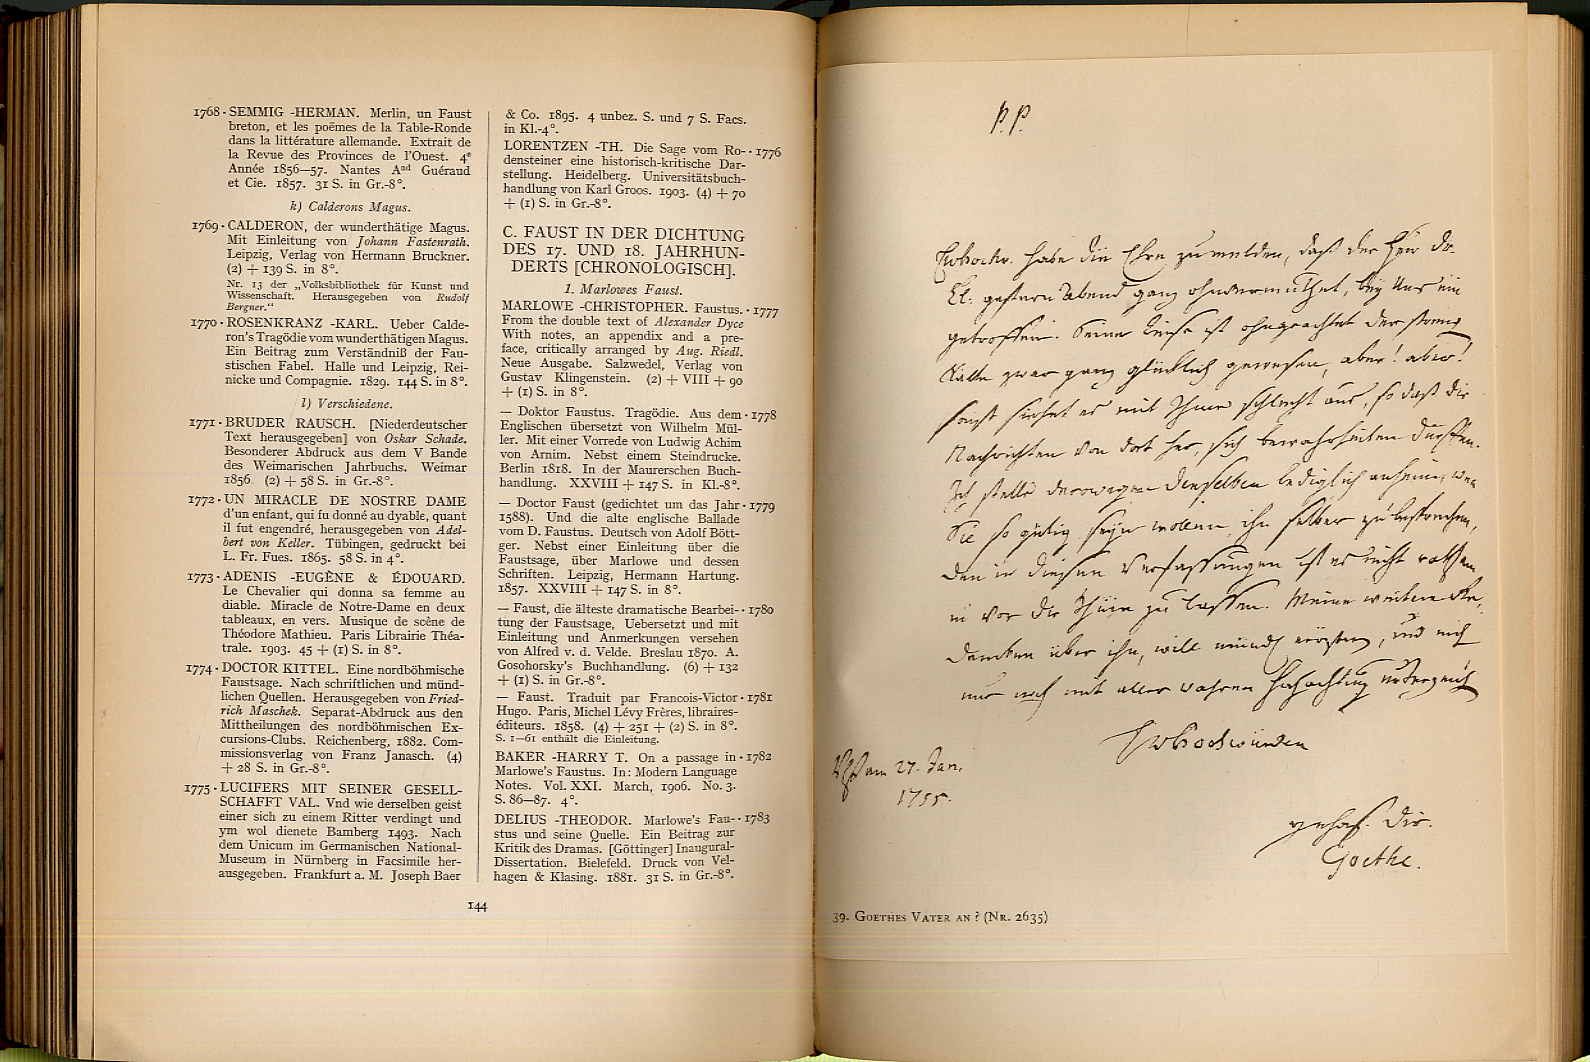 1768 · SEMMIG -HERMAN. Merlin, un Faust
breton, et les poëmes de la Table-Ronde
dans la littérature allemande. Extrait de
la Revue des Provinces de l'Ouest. 4e
Année 1856—57. Nantes And Guéraud
et Cie. 1857. 31 S. in Gr.-8°.
k) Calderons Magus.
1769 · CALDERON, der wunderthätige Magus.
Mit Einleitung von Johann Fastenrath.
Leipzig, Verlag von Hermann Bruckner.
(2) + 139 S. in 8°.
Nr. 13 der „Volksbibliothek für Kunst und
Wissenschaft. Herausgegeben von Rudolf
Bergner.“
1770 · ROSENKRANZ -KARL. Ueber Calde-
ron's Tragödie vom wunderthätigen Magus.
Ein Beitrag zum Verständniß der Fau-
stischen Fabel. Halle und Leipzig, Rei-
nicke und Compagnie. 1829. 144 S. in 8°.
l) Verschiedene.
1771 · BRUDER RAUSCH. [Niederdeutscher
Text herausgegeben] von Oskar Schade.
Besonderer Abdruck aus dem V Bande
des Weimarischen Jahrbuchs. Weimar
1856 (2) + 58 S. in Gr.-8°.
1772 · UN MIRACLE DE NOSTRE DAME
d'un enfant, qui fu donné au dyable, quant
il fut engendré, herausgegeben von Adel-
bert von Keller. Tübingen, gedruckt bei
L. Fr. Fues. 1865. 58 S. in 4°.
1773 · ADENIS -EUGÈNE & ÉDOUARD.
Le Chevalier qui donna sa femme au
diable. Miracle de Notre-Dame en deux
tableaux, en vers. Musique de scêne de
Théodore Mathieu. Paris Librairie Théa-
trale. 1903. 45 + (1) S. in 8°.
1774 · DOCTOR KITTEL. Eine nordböhmische
Faustsage. Nach schriftlichen und münd-
lichen Quellen. Herausgegeben von Fried-
rich Maschek. Separat-Abdruck aus den
Mittheilungen des nordböhmischen Ex-
cursions-Clubs. Reichenberg, 1882. Com-
missionsverlag von Franz Janasch. (4)
+ 28 S. in Gr.-8°.
1775 · LUCIFERS MIT SEINER GESELL-
SCHAFFT VAL. Vnd wie derselben geist
einer sich zu einem Ritter verdingt und
ym wol dienete Bamberg 1493. Nach
dem Unicum im Germanischen National-
Museum in Nürnberg in Facsimile her-
ausgegeben. Frankfurt a. M. Joseph Baer
& Co. 1895. 4 unbez. S. und 7 S. Facs.
in Kl.-4°.
LORENTZEN -TH. Die Sage vom Ro- · 1776
densteiner eine historisch-kritische Dar-
stellung. Heidelberg. Universitätsbuch-
handlung von Karl Groos. 1903. (4) + 70
+ (1) S. in Gr.-8°.
C. FAUST IN DER DICHTUNG
DES 17. UND 18. JAHRHUN-
DERTS [CHRONOLOGISCH].
1. Marlowes Faust.
MARLOWE -CHRISTOPHER. Faustus. · 1777
From the double text of Alexander Dyce
With notes, an appendix and a pre-
face, critically arranged by Aug. Riedl.
Neue Ausgabe. Salzwedel, Verlag von
Gustav Klingenstein. (2) + VIII + 90
+ (1) S. in 8°.
— Doktor Faustus. Tragödie. Aus dem · 1778
Englischen übersetzt von Wilhelm Mül-
ler. Mit einer Vorrede von Ludwig Achim
von Arnim. Nebst einem Steindrucke.
Berlin 1818. In der Maurerschen Buch-
handlung. XXVIII + 147 S. in Kl.-8°.
— Doctor Faust (gedichtet um das Jahr · 1779
1588). Und die alte englische Ballade
vom D. Faustus. Deutsch von Adolf Bött-
ger. Nebst einer Einleitung über die
Faustsage, über Marlowe und dessen
Schriften. Leipzig, Hermann Hartung.
1857. XXVIII + 147 S. in 8°.
— Faust, die älteste dramatische Bearbei- · 1780
tung der Faustsage, Uebersetzt und mit
Einleitung und Anmerkungen versehen
von Alfred v. d. Velde. Breslau 1870. A.
Gosohorsky's Buchhandlung. (6) + 132
+ (1) S. in Gr.-8°.
— Faust. Traduit par Francois-Victor · 1781
Hugo. Paris, Michel Lévy Frères, libraires-
éditeurs. 1858. (4) + 251 + (2) S. in 8°.
S. 1—61 enthält die Einleitung.
BAKER -HARRY T. On a passage in · 1782
Marlowe's Faustus. In: Modern Language
Notes. Vol. XXI. March, 1906. No. 3.
S. 86—87. 4°.
DELIUS -THEODOR. Marlowe's Fau- · 1783
stus und seine Quelle. Ein Beitrag zur
Kritik des Dramas. [Göttinger] Inaugural-
Dissertation. Bielefeld. Druck von Vel-
hagen & Klasing. 1881. 31 S. in Gr.-8°.
144
P. P.
habe die Ehre zu melden, daß der Herr
gestern Abend ganz ohnvermuthet, bey uns ein
getroffen. Seine Reise ist ohngeachtet der
Kälte zwar ganz glücklich gewesen, aber! aber!
sonst siehet es mit Ihme schlecht aus, so daß die
Nachrichten von dort her, sich bewahrheiten dürfften.
Ich stelle deroweegen Denselben lediglich anheim,
Sie so gütig seyn wollen, ihn selber zu besprechen,
den in diesen Verfassungen ist es nicht rathsam
vor die Thüre zu lassen. Meine weitere Ge,
dancken über ihn, will und mich
nur noch mit aller wahren Hochachtung
Ew Hochwürden
am 27. Jan.
1755.
gehors. Dir.
Goethe.
39. GOETHES VATER AN ? (NR. 2635)